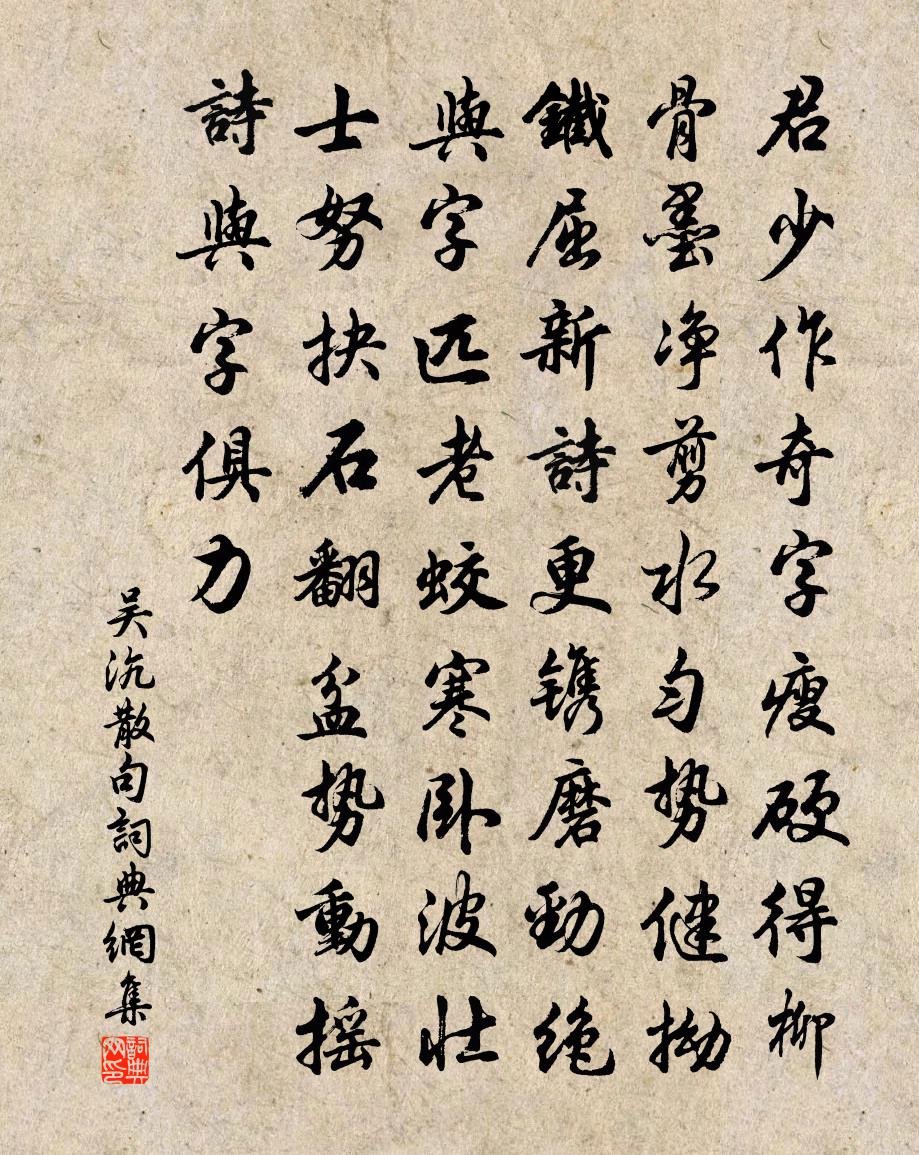 君少作奇字瘦硬得柳
骨墨净剪水匀势健拗
鐵屈新詩更镌磨勁绝
與字匹老蛟寒卧波壮
士努抉石翻盆势動摇
詩與字俱力
吴沆散句詞典網集
詞典网印